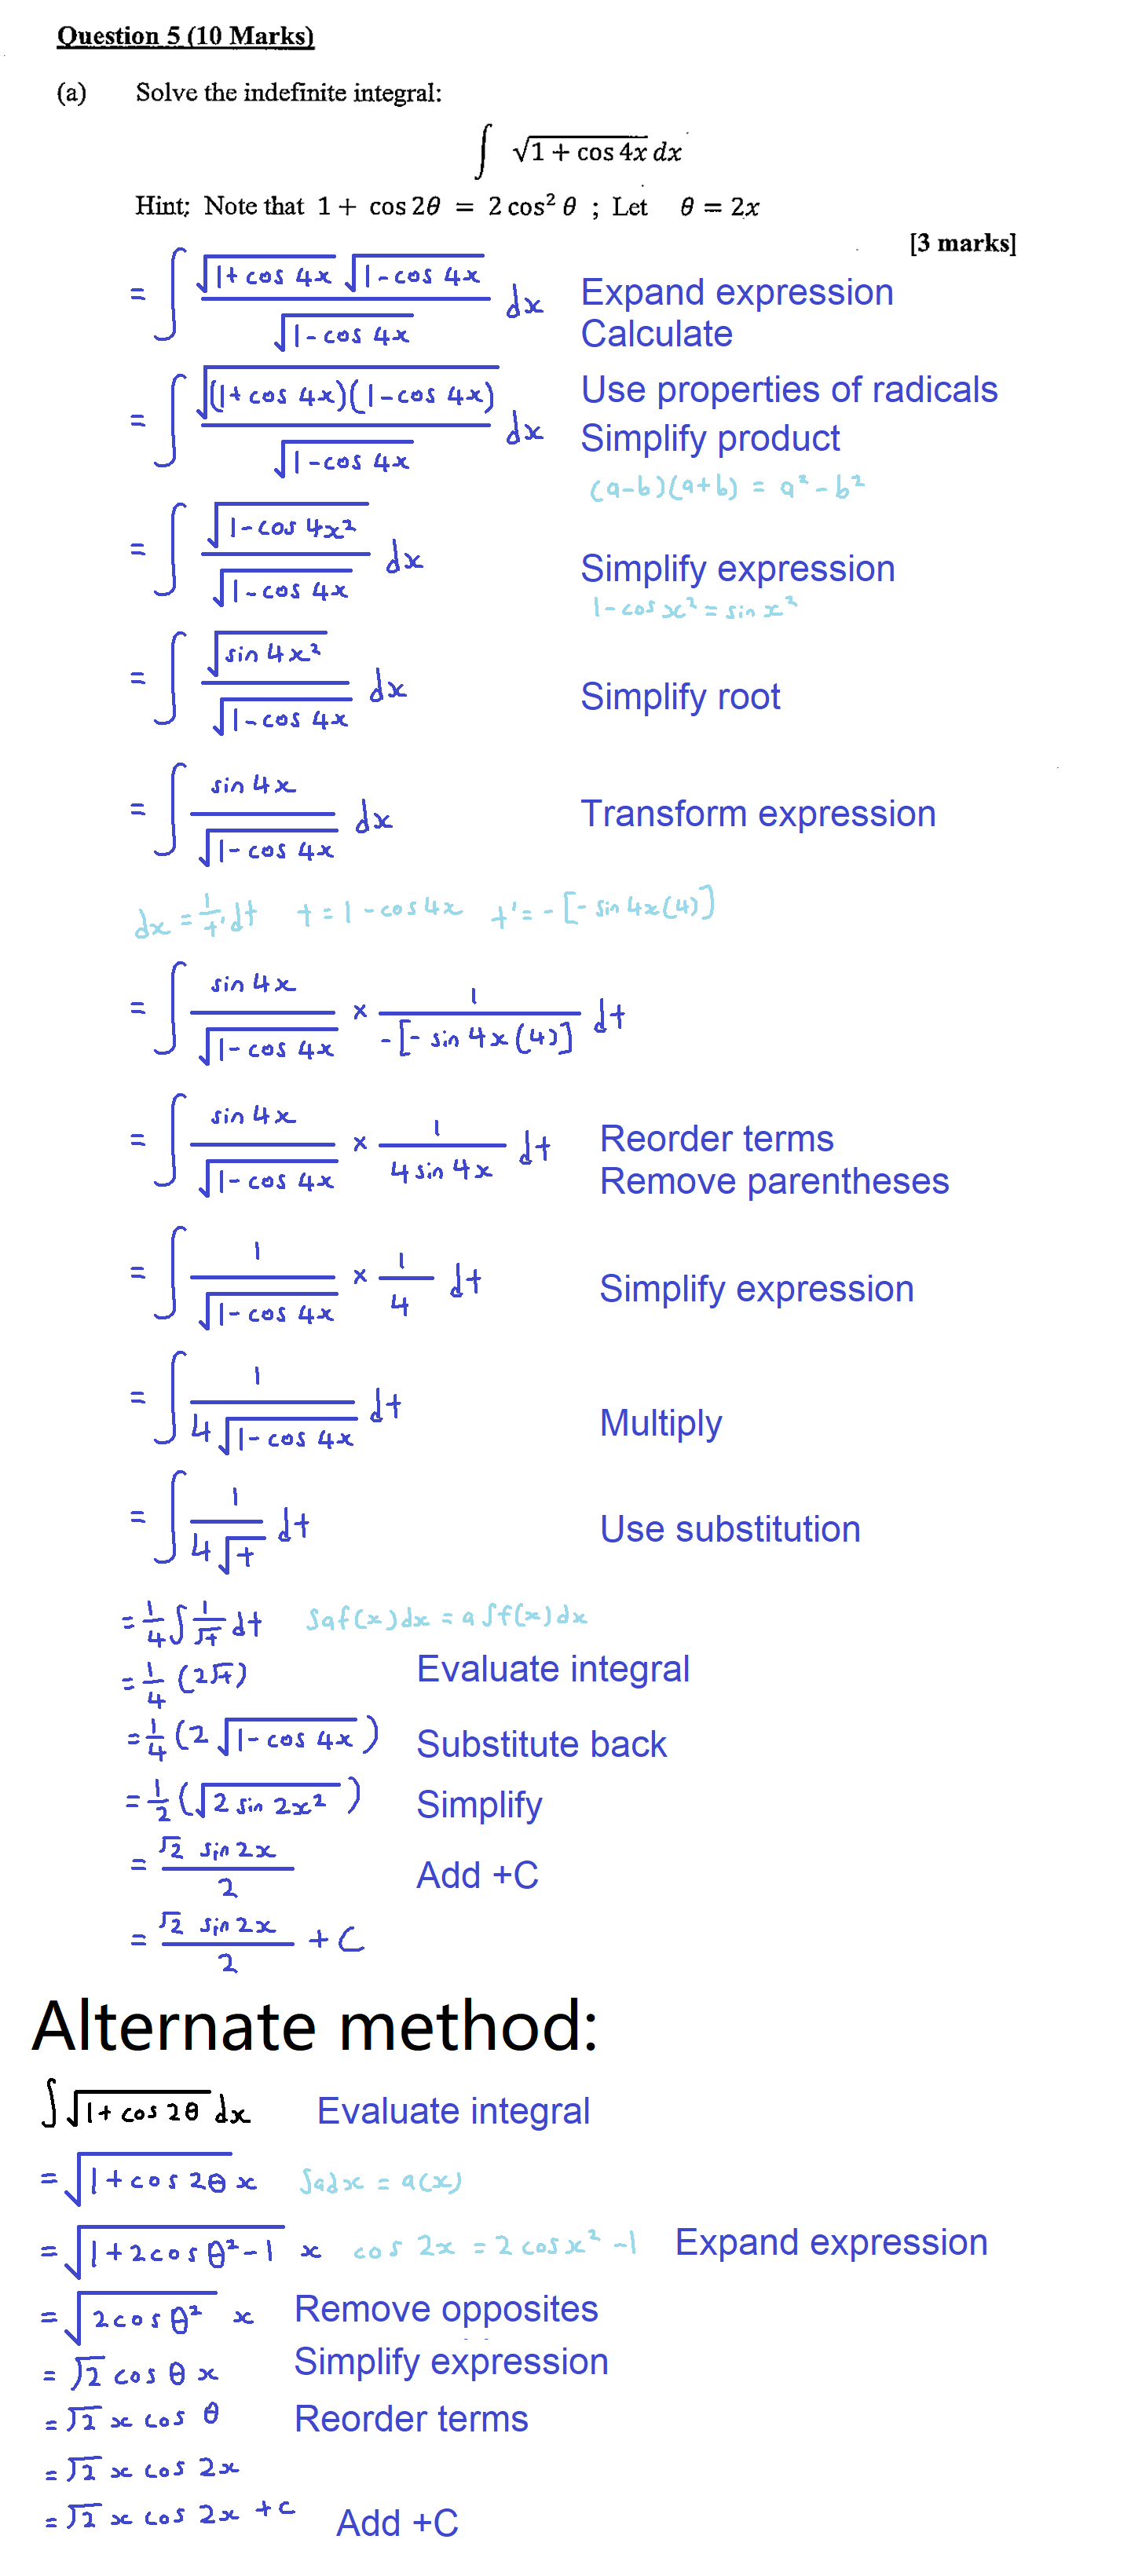 Question 5 (10 Marks)
(a) Solve the indefinite integral:
∫ √(1 + cos 4x) dx
Hint: Note that 1 + cos 2θ = 2 cos² θ ; Let θ = 2x
[3 marks]
= ∫ (√(1+cos 4x) √(1-cos 4x)) / √(1-cos 4x) dx Expand expression
Calculate
= ∫ √((1+cos 4x)(1-cos 4x)) / √(1-cos 4x) dx Use properties of radicals
Simplify product
(a-b)(a+b) = a²-b²
= ∫ √(1-cos 4x²) / √(1-cos 4x) dx Simplify expression
1-cos x² = sin x²
= ∫ √(sin 4x²) / √(1-cos 4x) dx Simplify root
= ∫ sin 4x / √(1-cos 4x) dx Transform expression
dx = 1/t' dt t = 1-cos4x t' = -[-sin 4x(4)]
= ∫ sin 4x / √(1-cos 4x) × 1 / -[-sin 4x(4)] dt
= ∫ sin 4x / √(1-cos 4x) × 1 / 4 sin 4x dt Reorder terms
Remove parentheses
= ∫ 1 / √(1-cos 4x) × 1/4 dt Simplify expression
= ∫ 1 / 4√(1-cos 4x) dt Multiply
= ∫ 1 / 4√t dt Use substitution
= 1/4 ∫ 1/√t dt ∫af(x)dx = a∫f(x)dx
= 1/4 (2√t) Evaluate integral
= 1/4 (2√(1-cos 4x)) Substitute back
= 1/2 (√(2 sin 2x²)) Simplify
= √2 sin 2x / 2 Add +C
= √2 sin 2x / 2 + C
Alternate method:
∫ √(1+cos 2θ) dx Evaluate integral
= √(1+cos 2θ) x ∫adx = a(x)
= √(1+2cos θ²-1) x cos 2x = 2cosx²-1 Expand expression
= √(2cos θ²) x Remove opposites
= √2 cos θ x Simplify expression
= √2 x cos θ Reorder terms
= √2 x cos 2x
= √2 x cos 2x + c Add +C